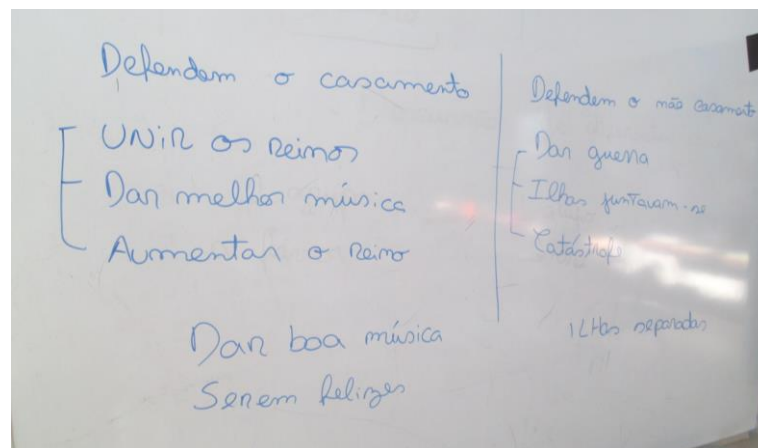 Defendem o casamento
UNiR os Reinos
Dar melhor música
Aumentar o Reino
Dar boa música
Serem felizes
Defendem o não casamento
Dar guerra
Ilhas juntavam-se
Catástrofe
ILHas separadas